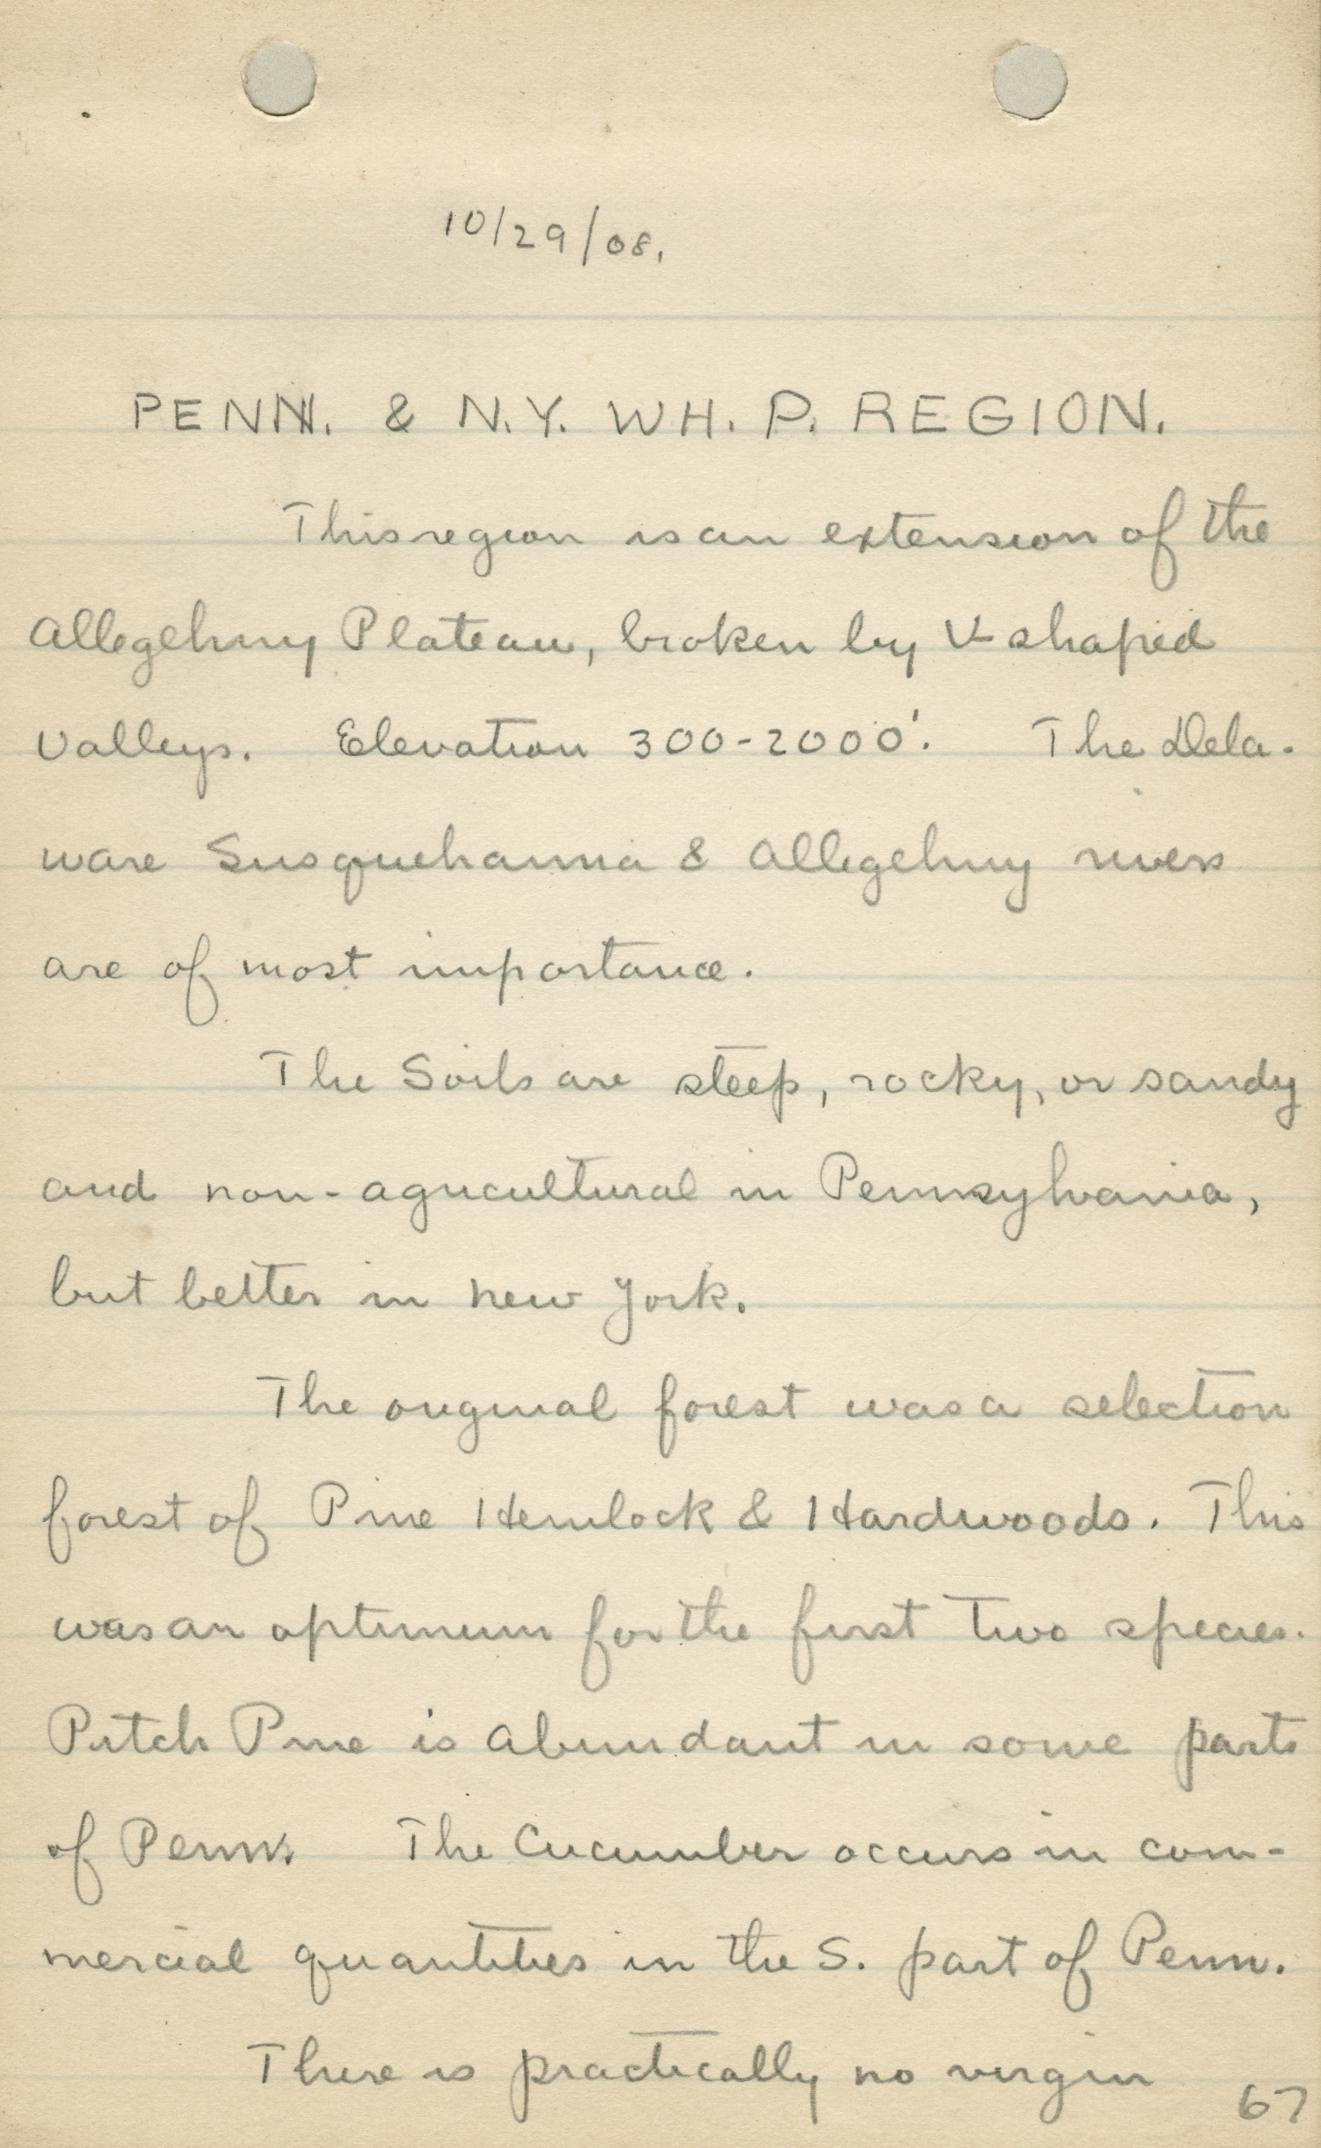 10/29/08.
PENN. & N.Y. WH. P. REGION.
This region is an extension of the
Allegehny Plateau, broken by V-shaped
Valleys. Elevation 300-2000'. The Dela-
ware Susquehanna & Allegehny rivers
are of most importance.
The Soils are steep, rocky, or sandy
and non-agricultural in Pennsylvania,
but better in New York.
The original forest was a selection
forest of Pine Hemlock & Hardwoods. This
was an optimum for the first two species.
Pitch Pine is abundant in some parts
of Penn. The Cucumber occurs in com-
mercial quantities in the S. part of Penn.
There is practically no virgin
67